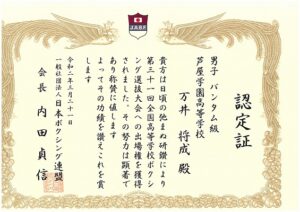 JABF
認定証
男子 バンタム級
芦屋学園高等学校
万井 将成 殿
貴方は日頃の弛まぬ研鑽により
第三十一回全国高等学校ボクシ
ング選抜大会への出場権を獲得
されました。その努力は顕著で
あり称賛に値します
よってその功績を讃えこれを賞
します
令和二年三月二十一日
一般社団法人 日本ボクシング連盟
会長 内田貞信